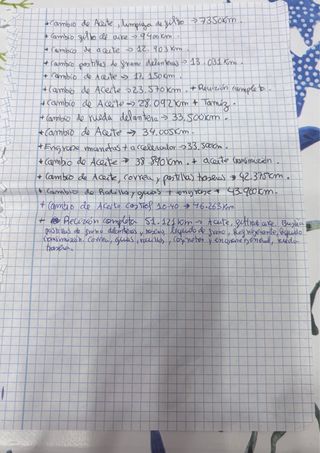 +Cambio de Aceite, limpieza de filtro → 7350Km.
+Cambio filtro de aire → 9400Km.
+Cambio de aceite → 12.903Km.
+Cambio pastillas de freno delanteras → 13.031Km.
+Cambio de Aceite → 17.150Km.
+Cambio de Aceite → 23.570Km. + Revición completa.
+Cambio de Aceite → 28.092Km + Tamiz.
+Cambio de rueda delantera → 33.500Km.
+Cambio de Aceite → 34.005Km.
+Engrase manetas + acelerador → 33.500Km.
+Cambio de Aceite → 38.890Km. + aceite transmición.
+Cambio de Aceite, correa, pastillas traseras → 42.375Km.
+Cambio de Rodillos, guias + engrase → 43.900Km.
+Cambio de Aceite castrol 10-40 → 46.263Km
+ Revición completa 51.121Km → Aceite, filtro aire, Bujia
pastillas de freno delanteras, traseras, liquido de freno, Refrigerante, liquido
transmición, correa, guias, rodillos, y engrase general, rueda
trasera.